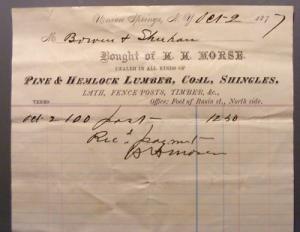 Union Springs, N. Y. Oct - 2 1877
M Bowen & Sheehan
Bought of H. H. MORSE,
DEALER IN ALL KINDS OF
PINE & HEMLOCK LUMBER, COAL, SHINGLES,
LATH, FENCE POSTS, TIMBER, &c.,
TERMS Office: Foot of Basin st., North side.
Oct - 2 100 post 12 50
Rec'd paymt
H H Morse